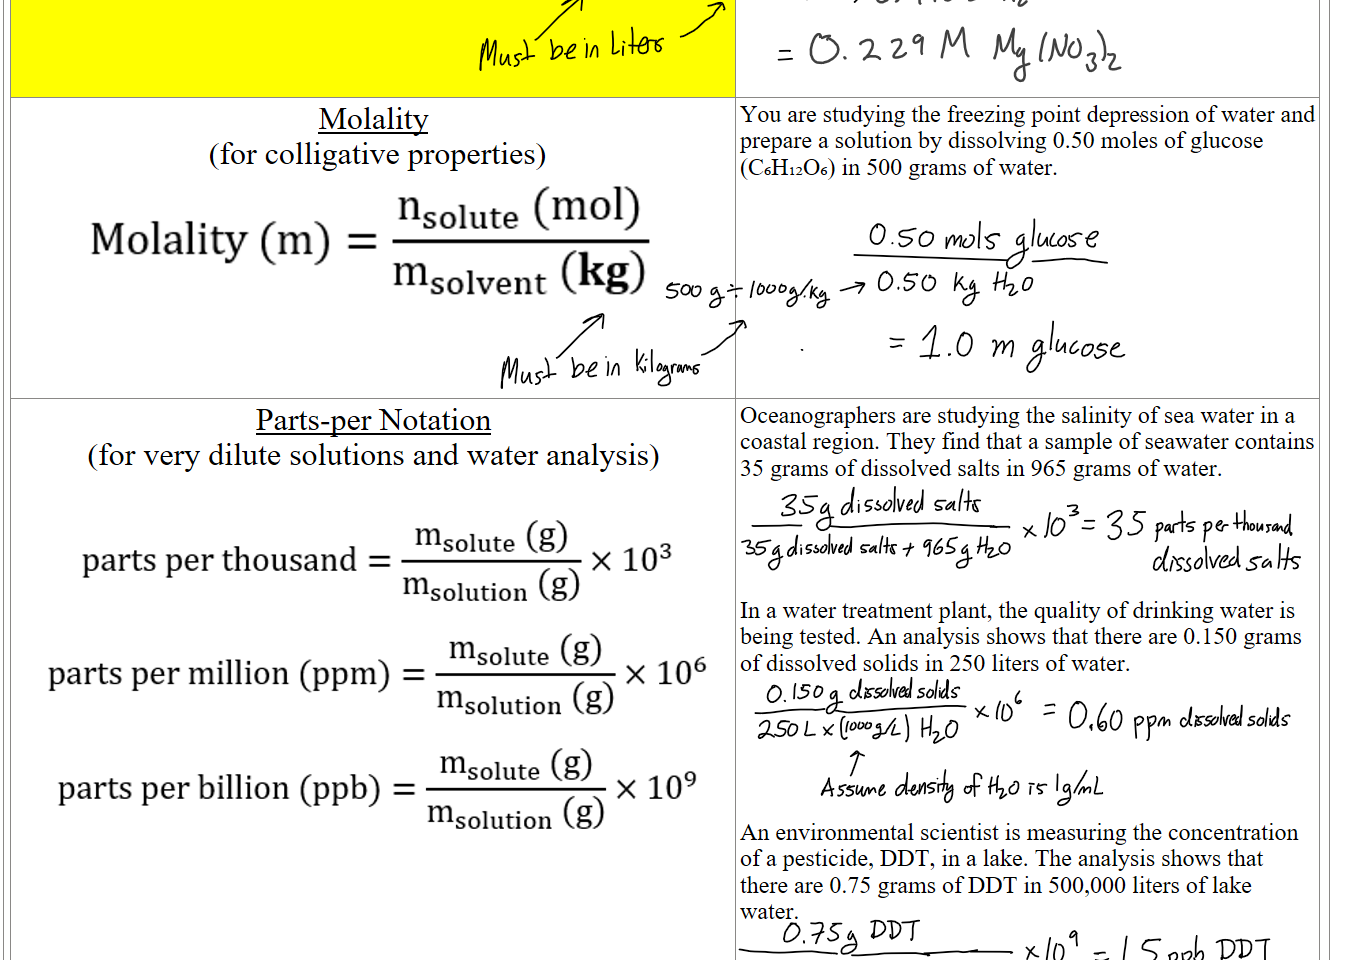 Must be in Liters
= 0.229 M Mg(NO₃)₂
Molality
(for colligative properties)
Molality (m) = n_solute (mol) / m_solvent (kg)
Must be in Kilograms
You are studying the freezing point depression of water and
prepare a solution by dissolving 0.50 moles of glucose
(C₆H₁₂O₆) in 500 grams of water.
0.50 mols glucose
500 g ÷ 1000g/kg → 0.50 kg H₂O
= 1.0 m glucose
Parts-per Notation
(for very dilute solutions and water analysis)
parts per thousand = m_solute (g) / m_solution (g) × 10³
parts per million (ppm) = m_solute (g) / m_solution (g) × 10⁶
parts per billion (ppb) = m_solute (g) / m_solution (g) × 10⁹
Oceanographers are studying the salinity of sea water in a
coastal region. They find that a sample of seawater contains
35 grams of dissolved salts in 965 grams of water.
35g dissolved salts
35g dissolved salts + 965g H₂O × 10³ = 35 parts per thousand
dissolved salts
In a water treatment plant, the quality of drinking water is
being tested. An analysis shows that there are 0.150 grams
of dissolved solids in 250 liters of water.
0.150g dissolved solids
250 L × (1000g/L) H₂O × 10⁶ = 0.60 ppm dissolved solids
↑
Assume density of H₂O is 1g/mL
An environmental scientist is measuring the concentration
of a pesticide, DDT, in a lake. The analysis shows that
there are 0.75 grams of DDT in 500,000 liters of lake
water.
0.75g DDT
× 10⁹ = 1.5 ppb DDT